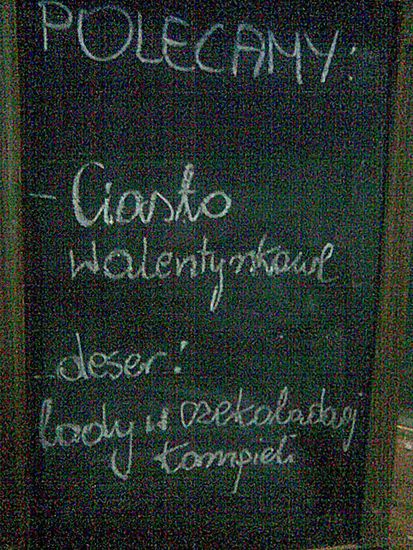 POLECAMY:
- Ciasto
Walentynkowe
- deser:
lody w czekoladowej
kąpieli